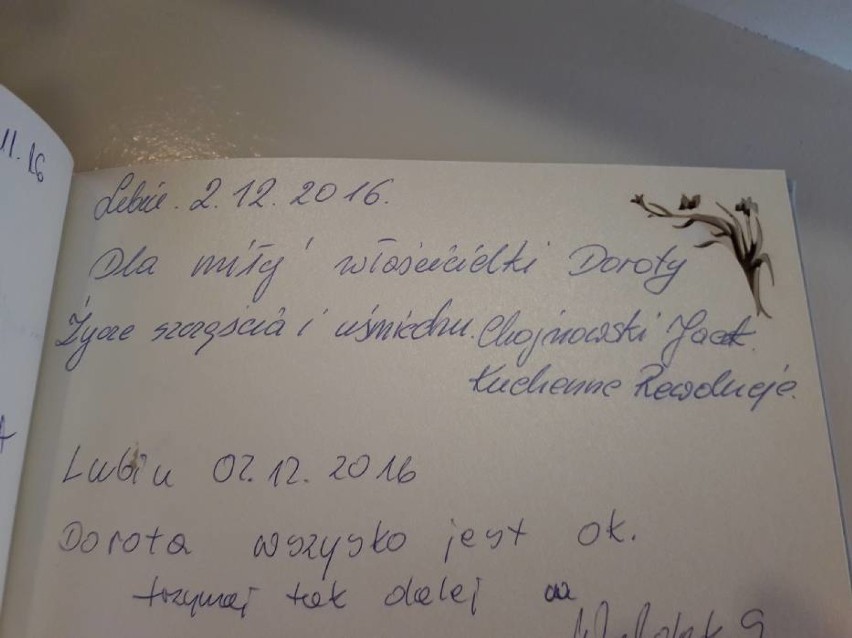 11.16
2.12.2016.
Dla miły właścicielki Doroty
Życze szczęścia i uśmiechu. Chojnowski Jacek.
Kuchenne Rewolucje.
Lubiu 02.12.2016
Dorota wszysko jest ok.
trzymaj tak dalej